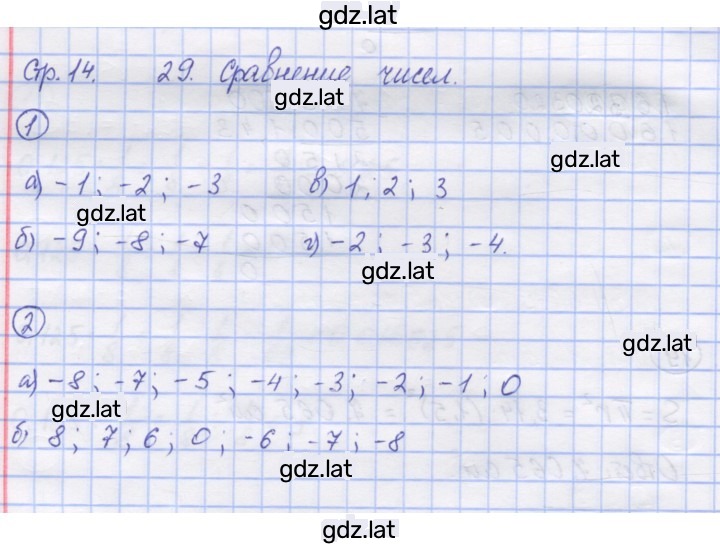 gdz.lat
Стр. 14. 29. Сравнение чисел.
gdz.lat
1
gdz.lat
а) -1; -2; -3 в) 1; 2; 3
gdz.lat
б) -9; -8; -7 г) -2; -3; -4.
gdz.lat
2
gdz.lat
а) -8; -7; -5; -4; -3; -2; -1; 0
gdz.lat
б) 8; 7; 6; 0; -6; -7; -8
gdz.lat
gdz.lat